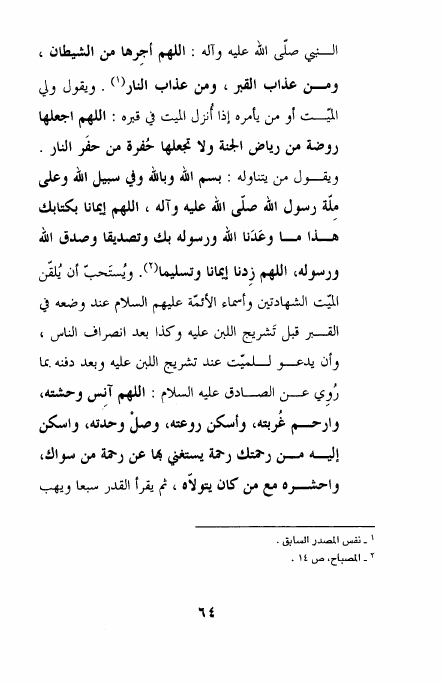 النبي صلّى الله عليه وآله : اللهم أجِرها من الشيطان ،
ومن عذاب القبر ، ومن عذاب النار(١) . ويقول ولي
الميّت أو من يأمره إذا أُنزل الميت في قبره : اللهم اجعلها
روضة من رياض الجنة ولا تجعلها حُفرة من حفَر النار .
ويقول من يتناوله : بسم الله وبالله وفي سبيل الله وعلى
مِلّة رسول الله صلّى الله عليه وآله ، اللهم إيمانا بكتابك
هذا ما وعَدَنا الله ورسوله بك وتصديقا وصدق الله
ورسوله، اللهم زِدنا إيمانا وتسليما(٢). ويُستَحبّ أن يُلقّن
الميّت الشهادتين وأسماء الأئمّة عليهم السلام عند وضعه في
القبر قبل تَشريج اللبن عليه وكذا بعد انصراف الناس ،
وأن يدعو للميّت عند تشريج اللبن عليه وبعد دفنه بما
رُوِي عن الصادق عليه السلام : اللهم آنِس وحشته،
وارحم غُربته، وأسكن روعته، وصلْ وحدته، واسكن
إليه من رحمتك رحمة يستغني بها عن رحمة من سواك،
واحشره مع من كان يتولاّه ، ثم يقرأ القدر سبعا ويهب
١ ـ نفس المصدر السابق .
٢ ـ المصباح، ص ١٤ .
٦٤